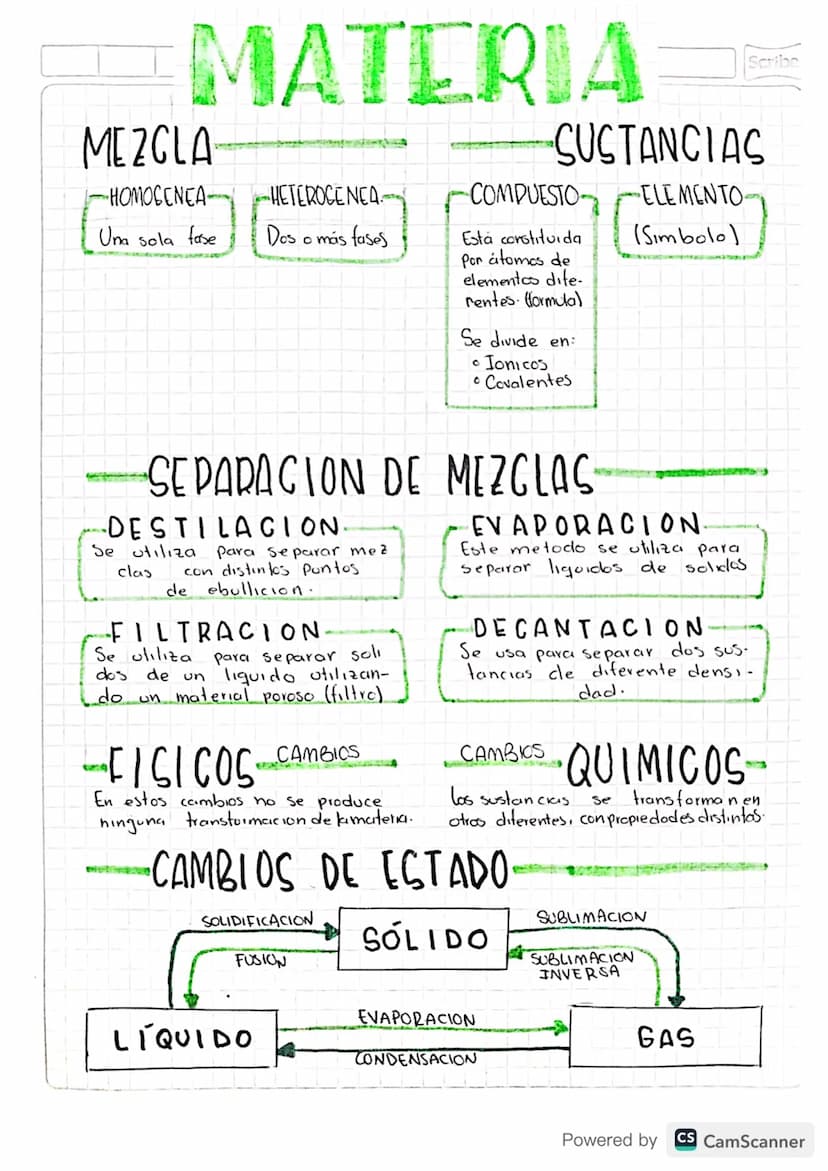 MATERIA
Scribe
MEZCLA
SUSTANCIAS
HOMOGENEA
Una sola fase
HETEROGENEA.
Dos o más fases
COMPUESTO
Está constituida
por átomos de
elementos dife-
rentes. (formula)
Se divide en:
Ionicos
Covalentes
ELEMENTO
(Simbolo)
SEPARACION DE MEZCLAS
DESTILACION
Se utiliza para separar mez
clas con distintos puntos
de ebullicion.
EVAPORACION
Este metodo se utiliza para
separar liquidos de solidos
FILTRACION
Se utiliza para separar soli
dos de un liquido utilizan-
do un material poroso (filtro)
DECANTACION
Se usa para separar dos sus-
tancias de diferente densi-
dad.
FISICOS CAMBIOS
En estos cambios no se produce
ninguna transformacion de la materia.
CAMBIOS QUIMICOS
Los sustancias se transforman en
otros diferentes, con propiedades distintos.
CAMBIOS DE ESTADO
SOLIDIFICACION
FUSION
SÓLIDO
SUBLIMACION
SUBLIMACION
INVERSA
LÍQUIDO
EVAPORACION
CONDENSACION
GAS
Powered by CS CamScanner